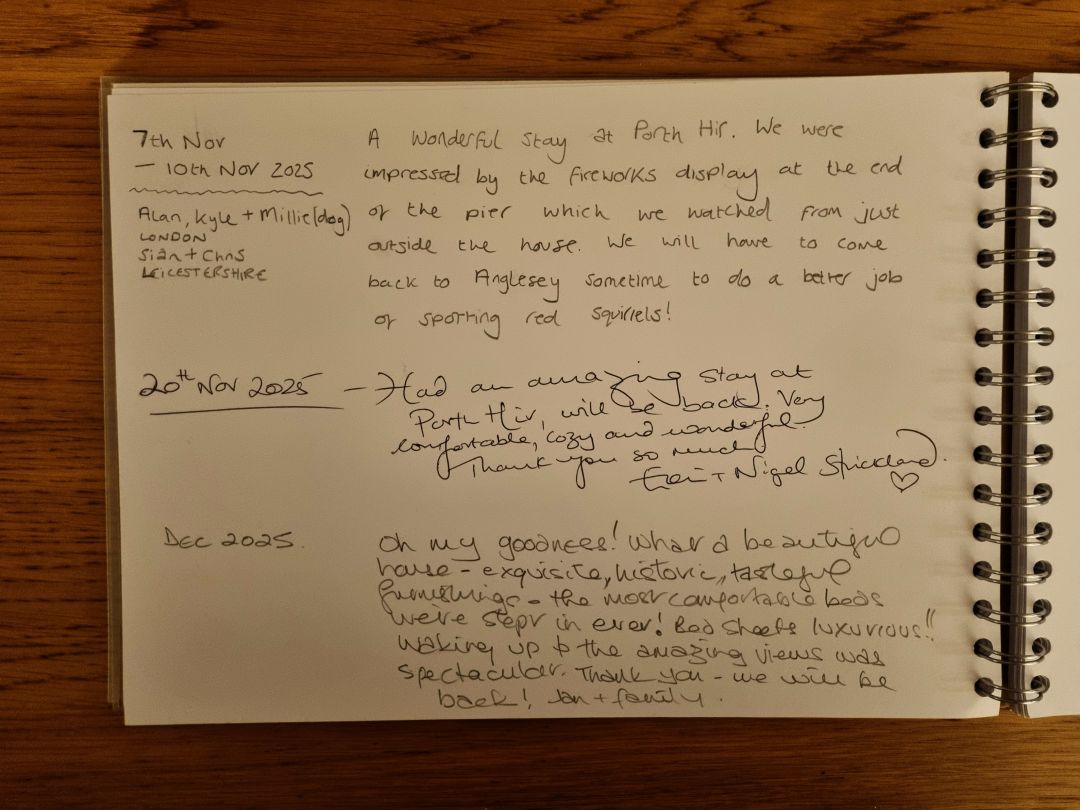 7th Nov
— 10th Nov 2025
Alan, Kyle + Millie (dog)
LONDON
Sian + Chris
LEICESTERSHIRE
A wonderful stay at Porth Hir. We were
impressed by the fireworks display at the end
of the pier which we watched from just
outside the house. We will have to come
back to Anglesey sometime to do a better job
of sporting red squirrels!
20th Nov 2025 — Had an amazing stay at
Porth Hir, will be back. Very
comfortable, cozy and wonderful.
Thank you so much.
+ Nigel Strickland.
Dec 2025.
Oh my goodness! What a beautiful
house - exquisite, historic, tasteful
furnishings - the most comfortable beds
we're slept in ever! Bed sheets luxurious!!
Waking up to the amazing views was
spectacular. Thank you - we will be
back! Jan + family.